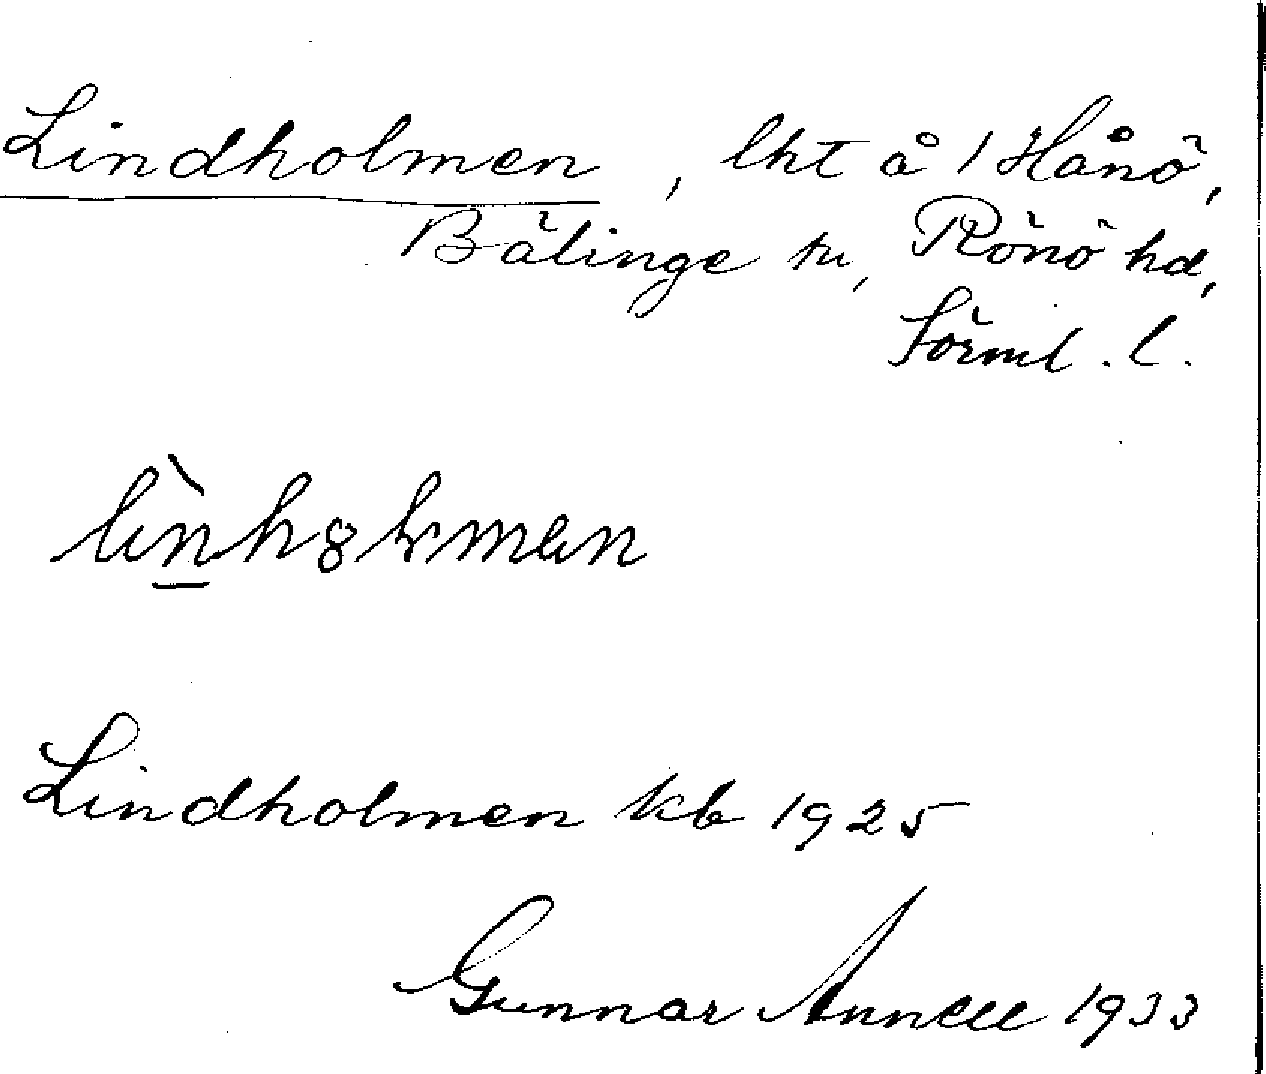 Lindholmen, lht å 1 Hånö,
Bälinge sn, Rönö hd,
Södml. l.
Lindholmen kb 1925
Gunnar Annell 1933